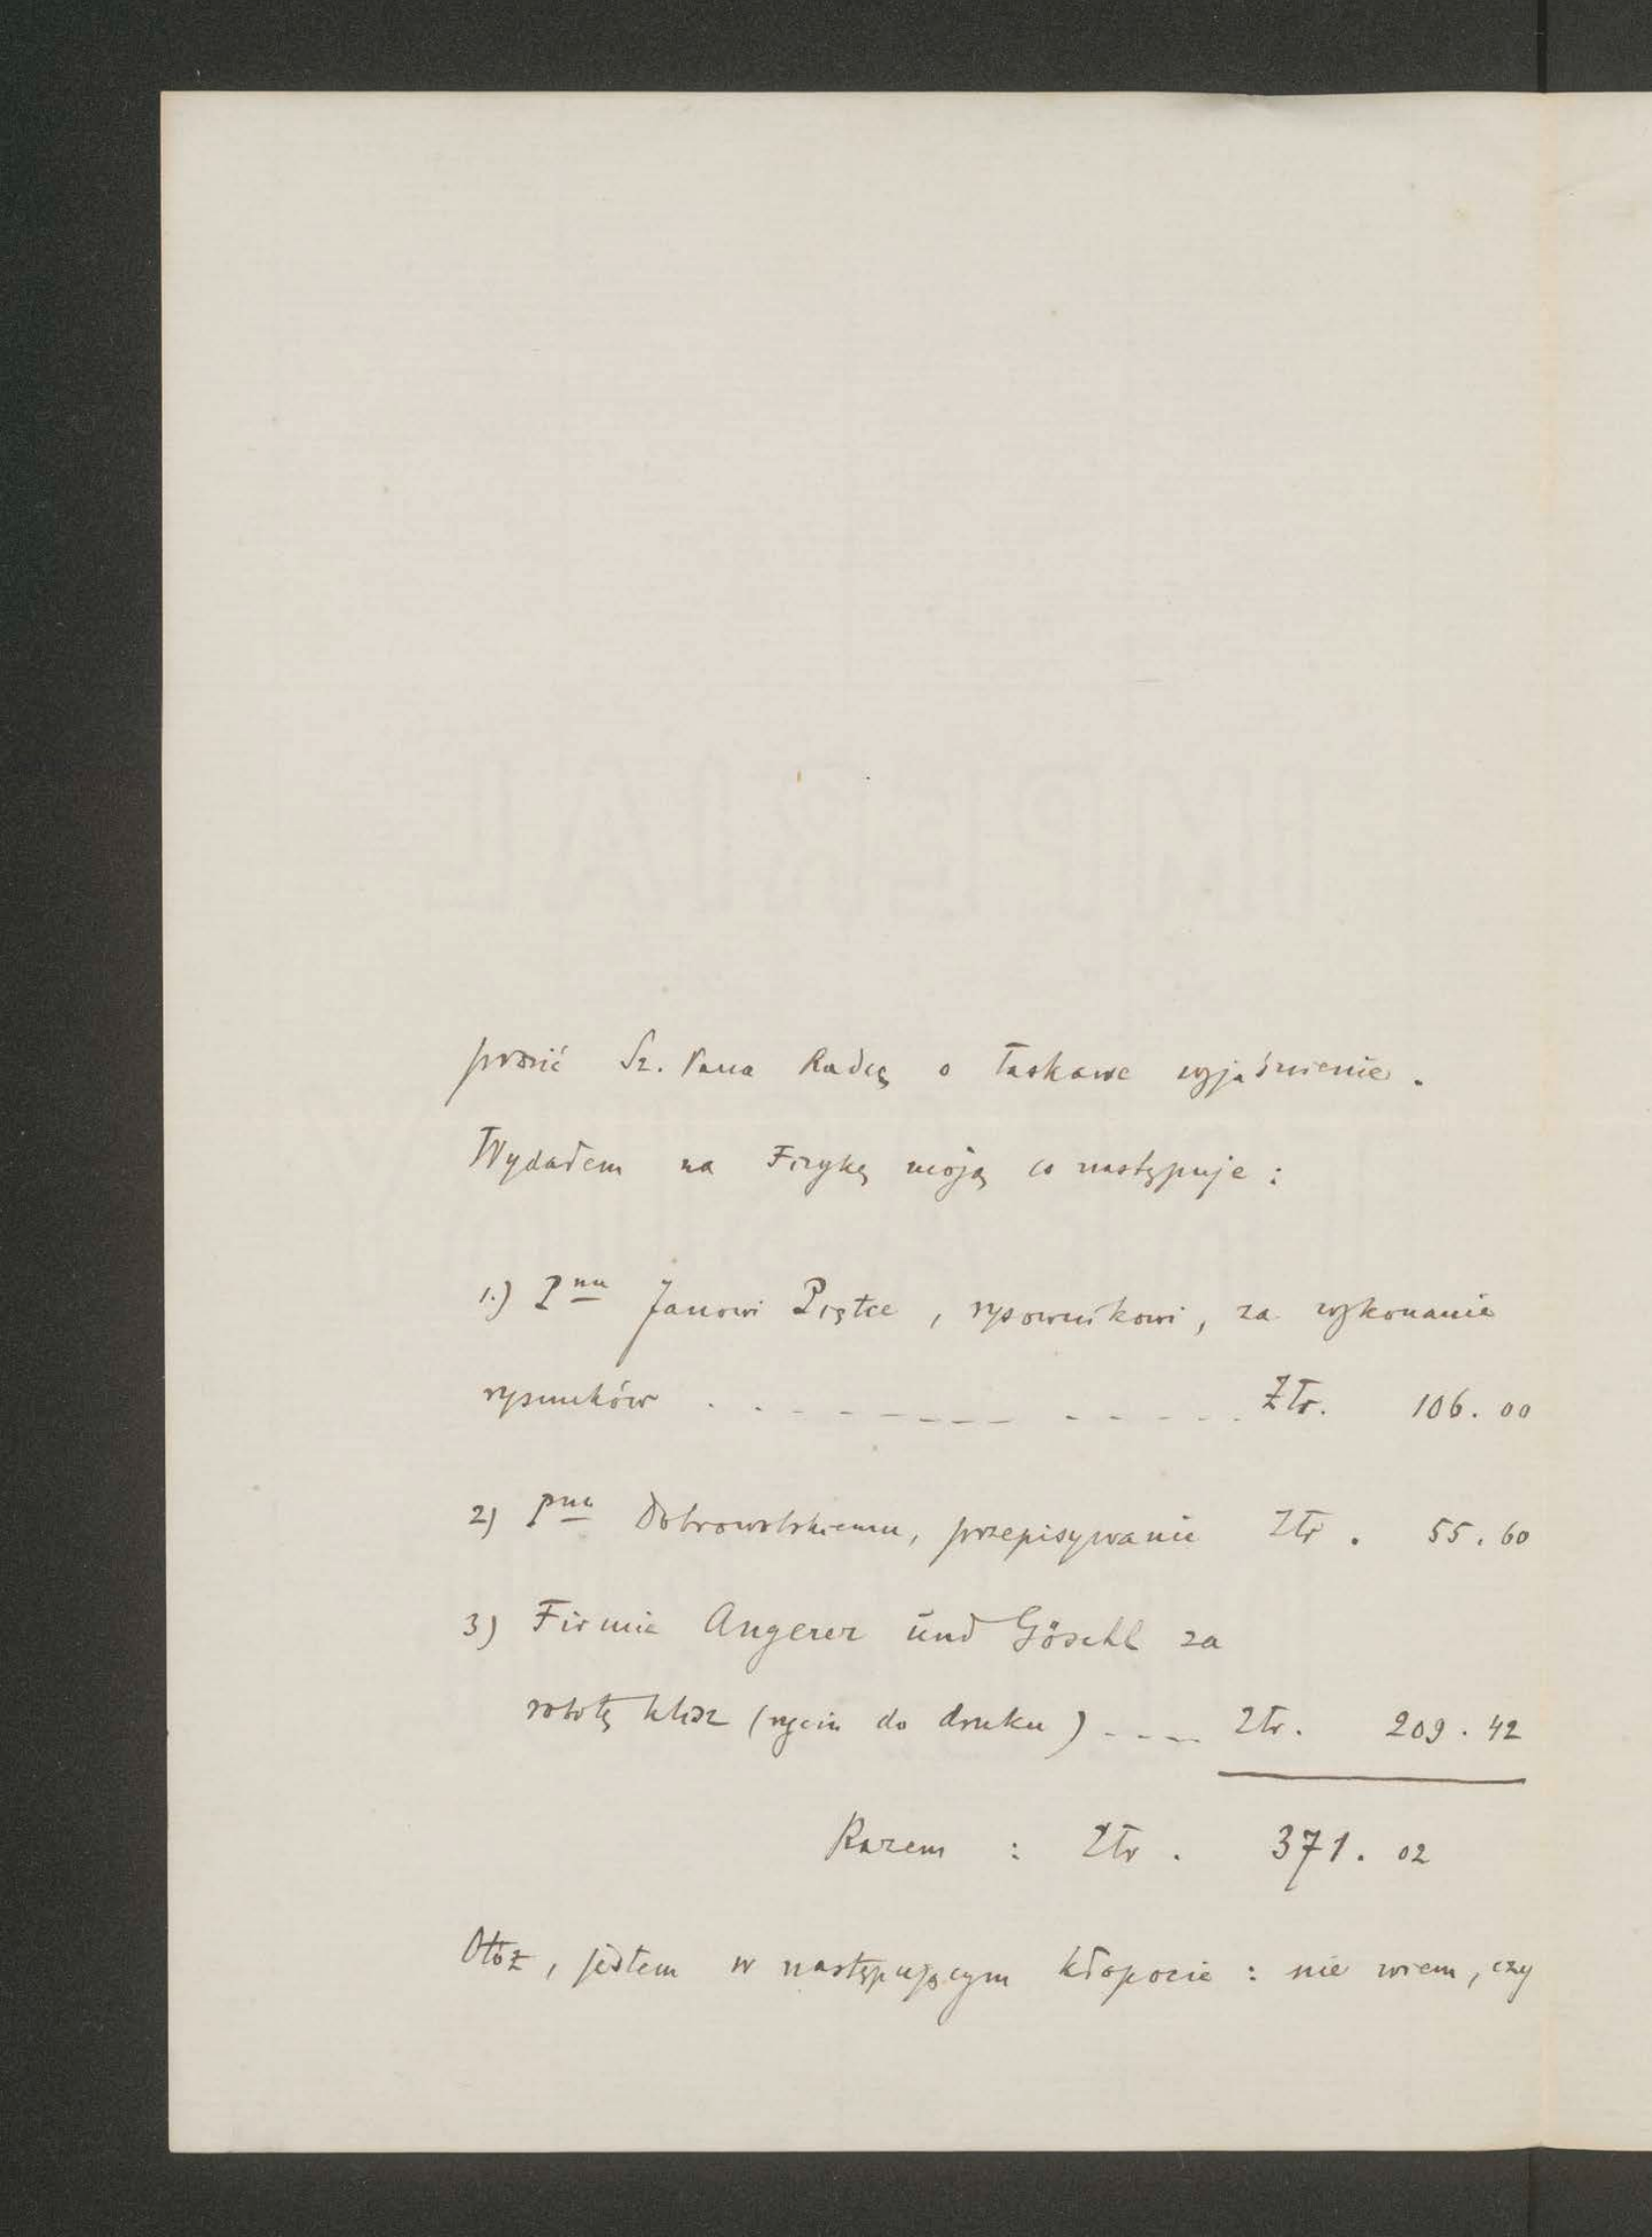 prosić Sz. Pana Radcę o łaskawe wyjaśnienie.
Wydałem na Fizykę moją co następuje:
1.) Pnu Janowi Piątce, rysownikowi, za wykonanie
rysunków . . - - - - - - - - - - - - Złr. 106.00
2) Pnu Dobrowolskiemu, przepisywanie Złr. 55.60
3) Firmie Angerer und Göschl za
robotę klisz (rycin do druku) - - - - Złr. 209.42
Razem : Złr. 371.02
Otóż, jestem w następującym kłopocie : nie wiem, czy